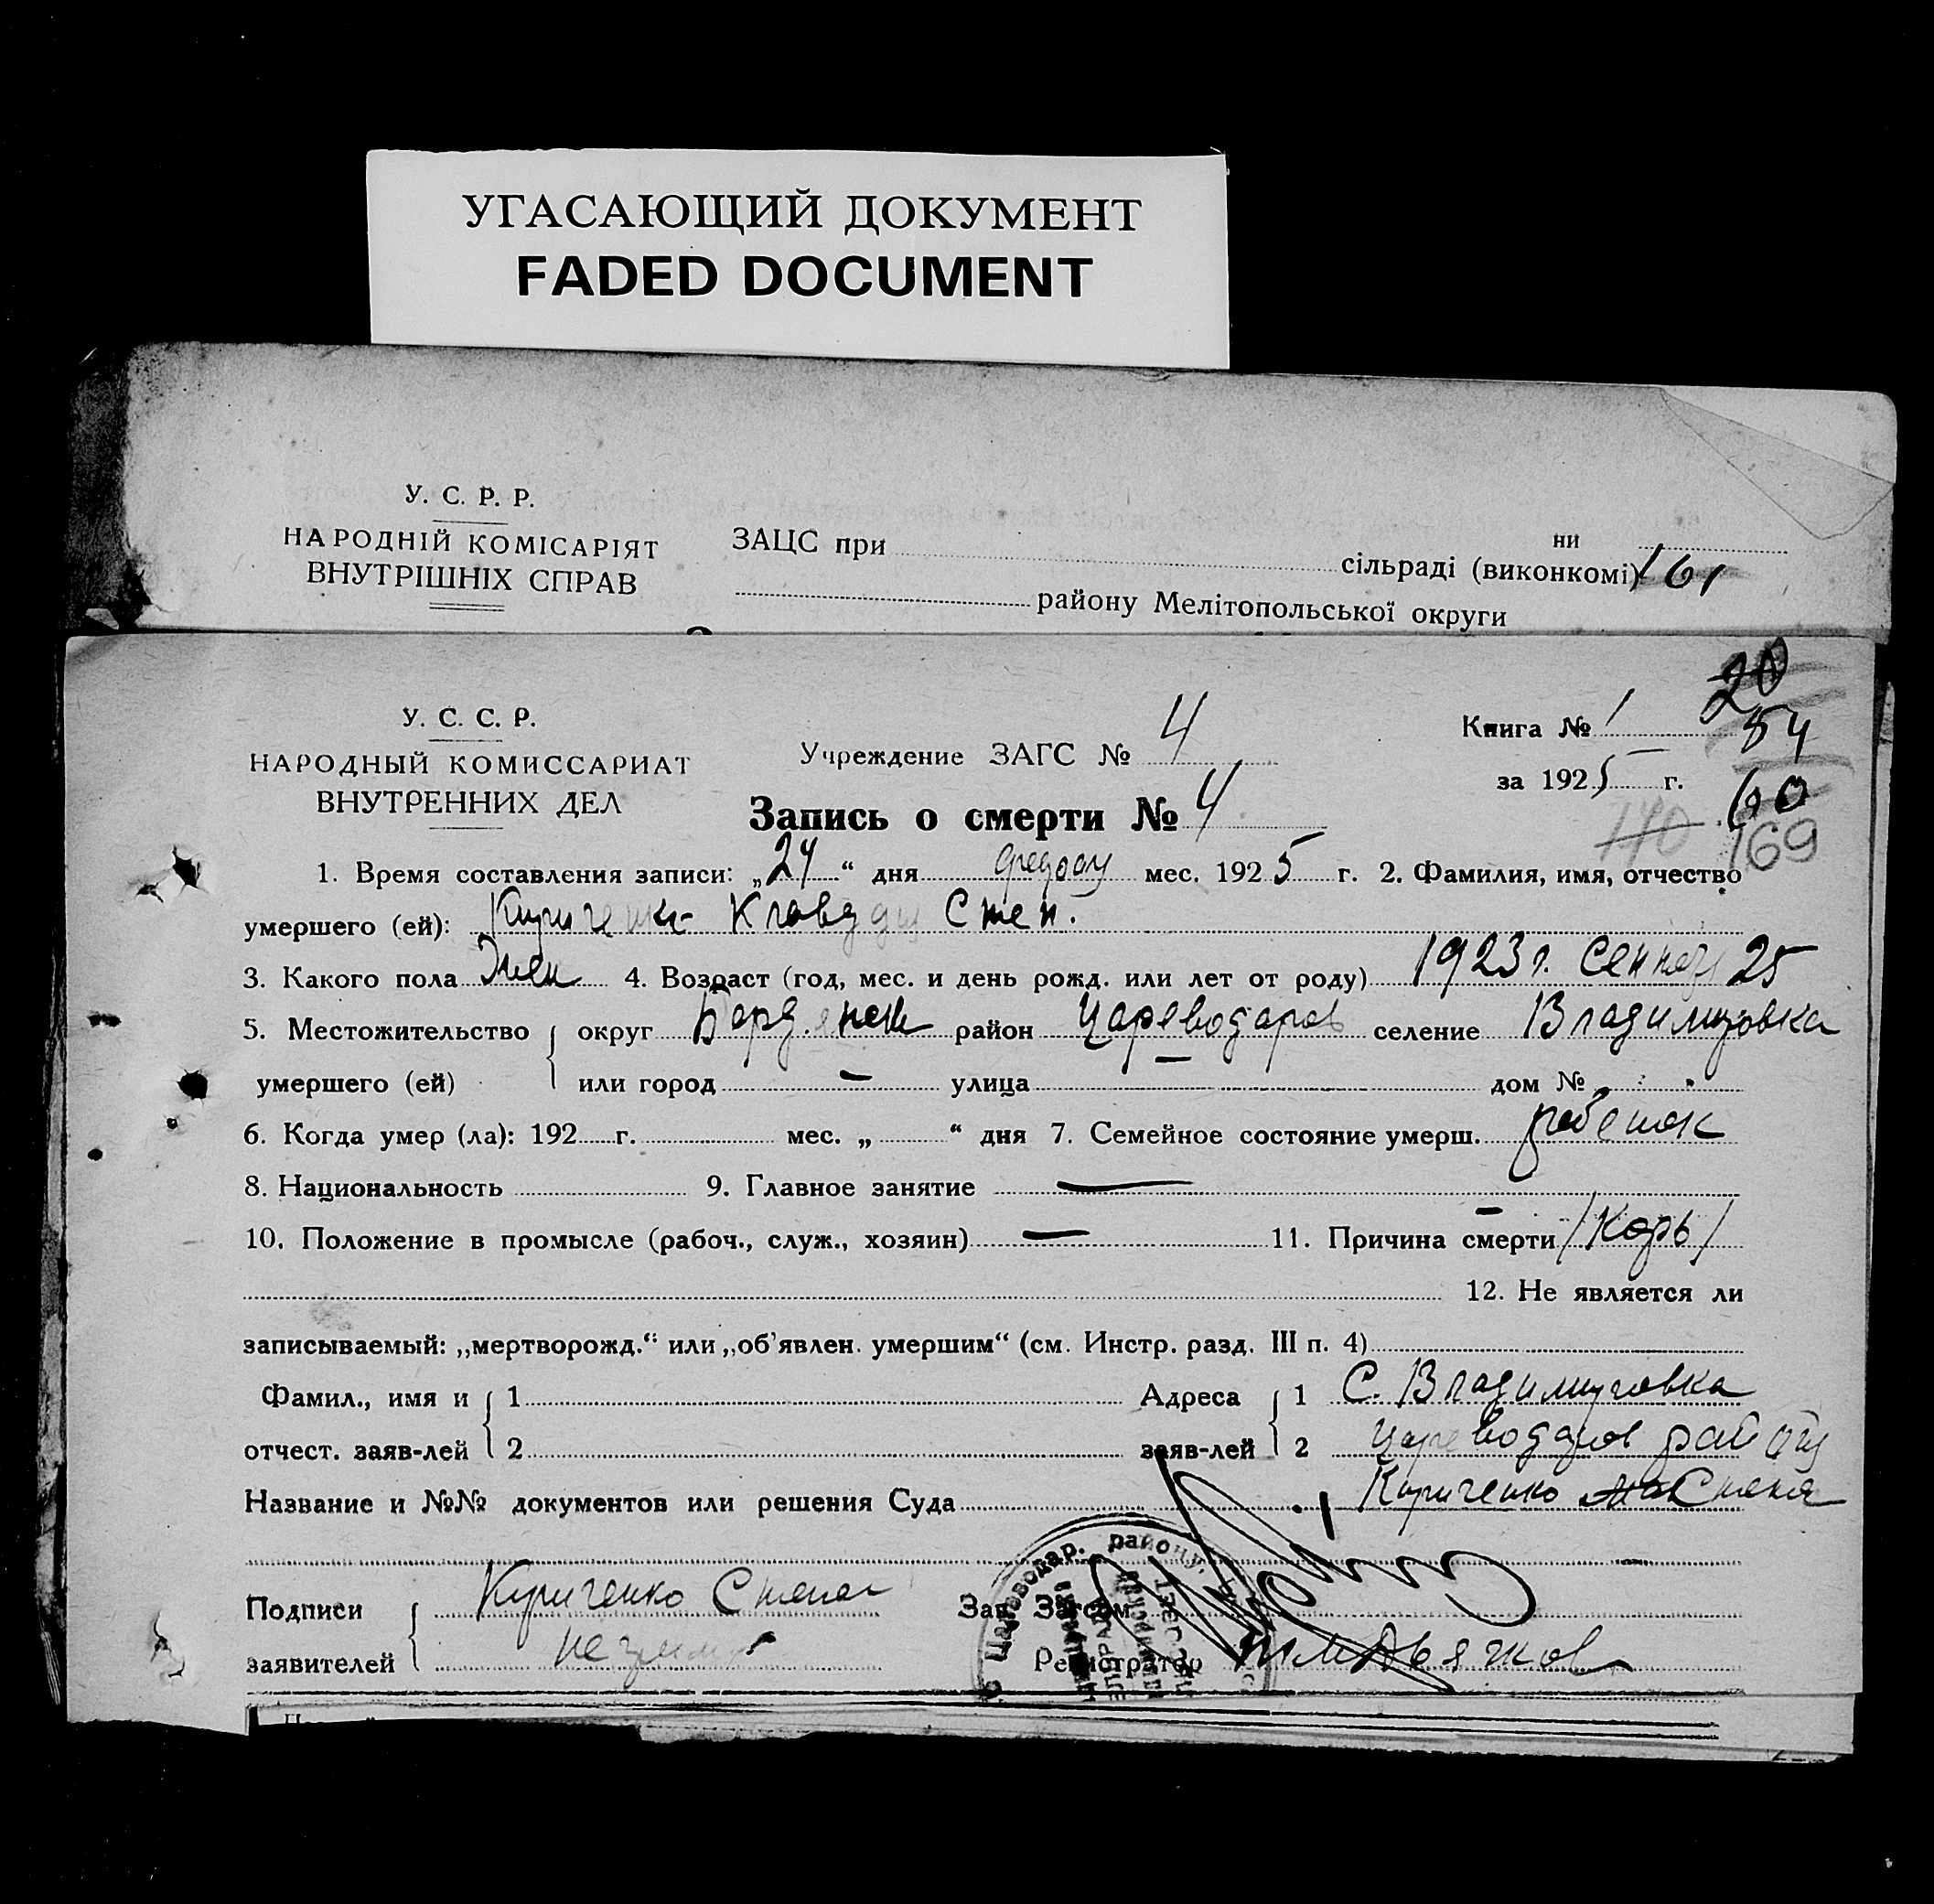 УГАСАЮЩИЙ ДОКУМЕНТ
FADED DOCUMENT
У. С. Р. Р.
НАРОДНІЙ КОМІСАРІЯТ
ВНУТРІШНІХ СПРАВ
ЗАЦС при
ни
сільраді (виконкомі) 161
району Мелітопольської округи
У. С. С. Р.
НАРОДНЫЙ КОМИССАРИАТ
ВНУТРЕННИХ ДЕЛ
Учреждение ЗАГС № 4
Книга № 1
20
54
за 1925 г.
60
Запись о смерти № 4
170 169
1. Время составления записи: „24“ дня мес. 1925 г. 2. Фамилия, имя, отчество
умершего (ей): Стен.
3. Какого пола Жен 4. Возраст (год, мес. и день рожд. или лет от роду) 1923 г. 25
5. Местожительство округ район Цареводаров селение Владимировка
умершего (ей) или город — улица — дом №
6. Когда умер (ла): 192 г. мес. „ “ дня 7. Семейное состояние умерш. ребенок
8. Национальность 9. Главное занятие —
10. Положение в промысле (рабоч., служ., хозяин) — 11. Причина смерти — /Корь/
12. Не является ли
записываемый: „мертворожд.“ или „об'явлен. умершим“ (см. Инстр. разд. III п. 4)
Фамил., имя и 1 Адреса 1 С. Владимировка
отчест. заяв-лей 2 заяв-лей 2 Цареводаров
Название и №№ документов или решения Суда Кириченко
Подписи Кириченко Степан Зав. Загсом
заявителей Регистратор
Цареводар. району